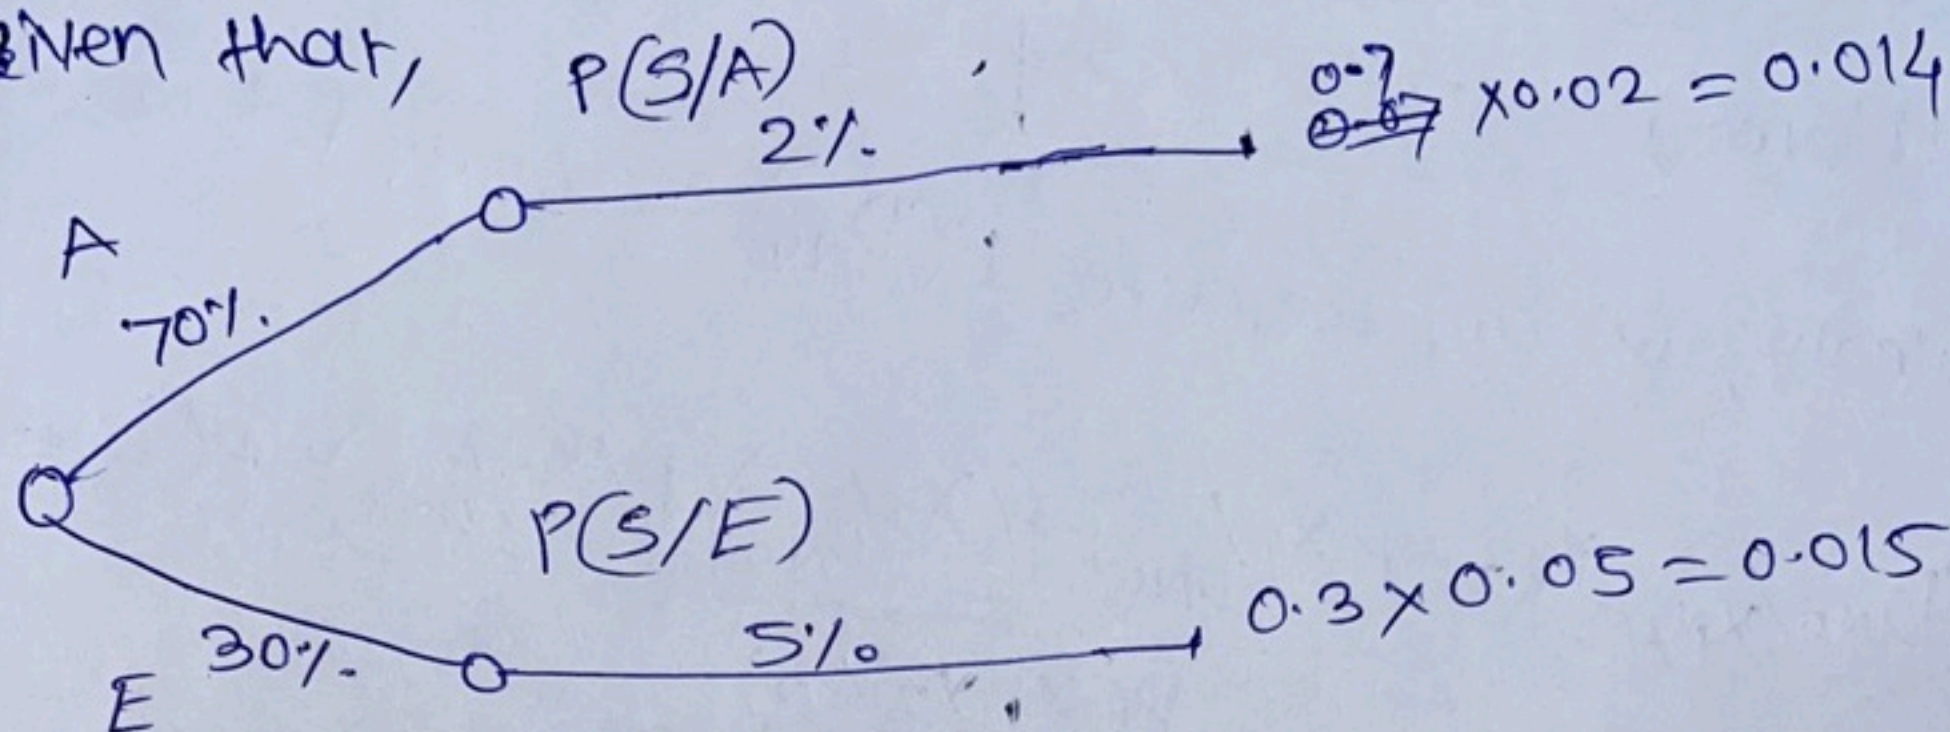 Given that, P(S/A)
2%. 0.7 x0.02 = 0.014
A
70%.
P(S/E)
5% 0.3 x 0.05 = 0.015
30%.
E